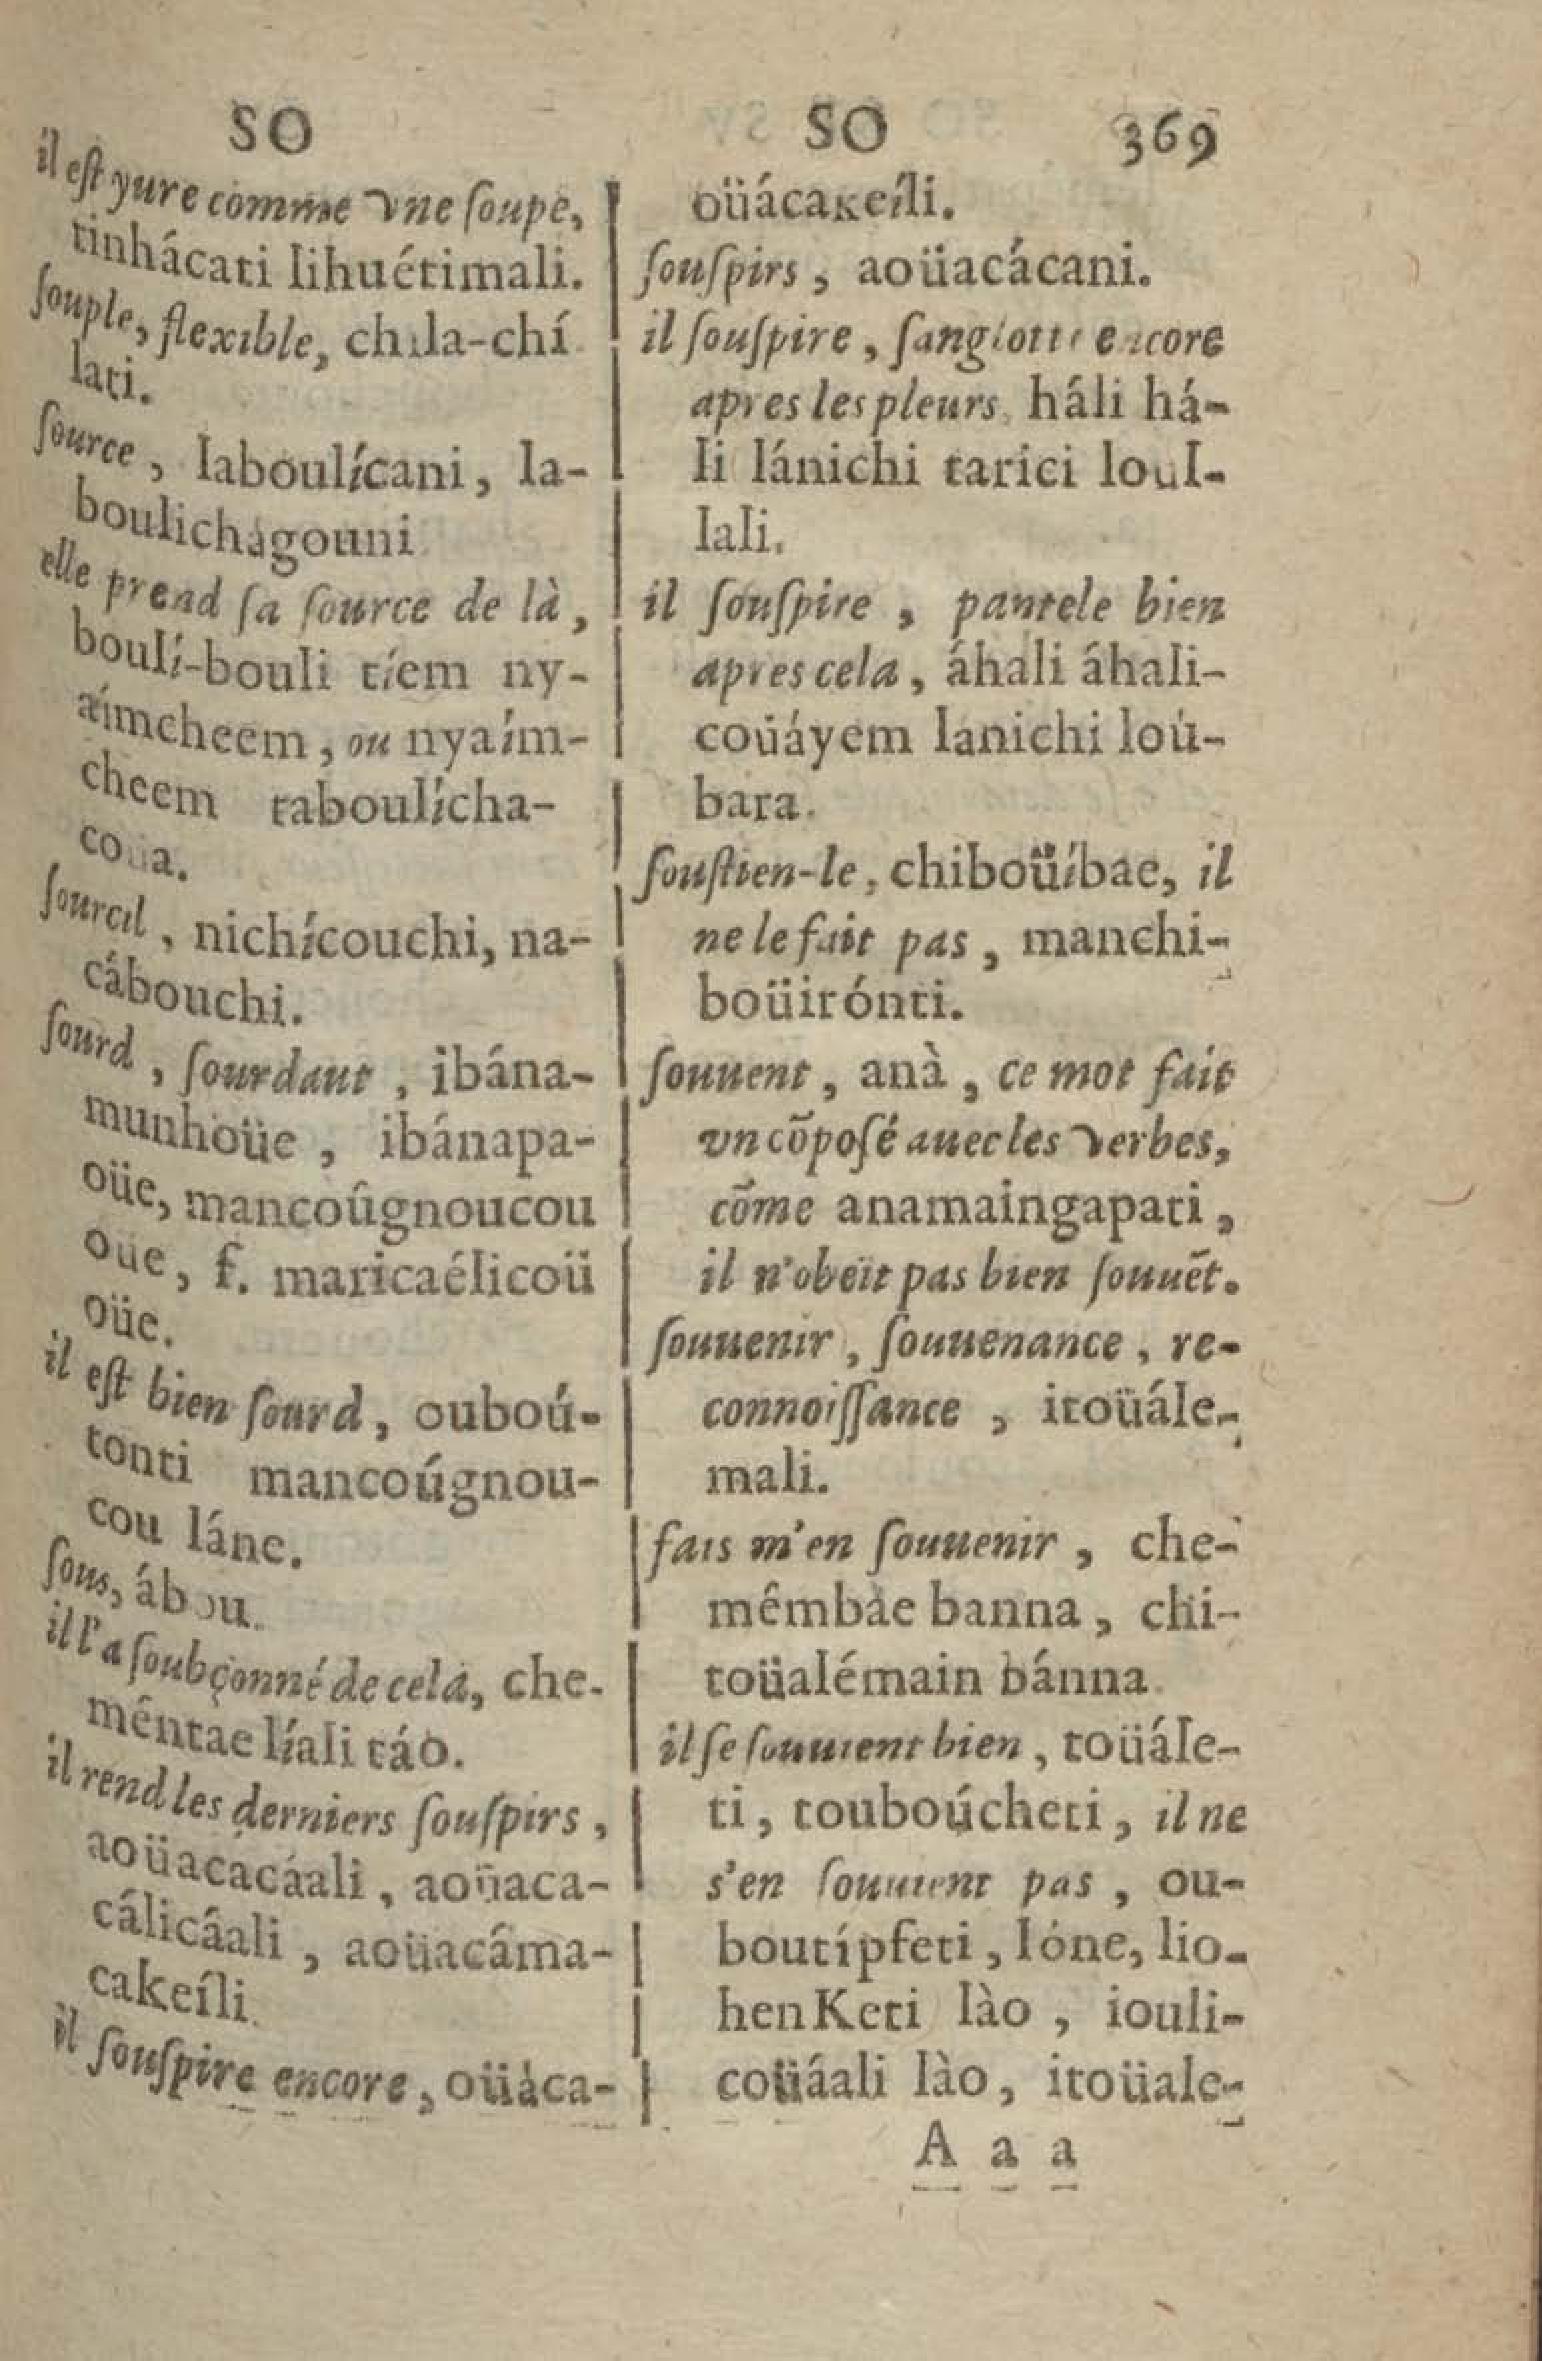 SO
il eſt yure comme vne ſoupe,
tinhácati lihuétimali.
ſouple, flexible, chila-chí
lati.
ſource, laboulícani, la-
boulichágouni
elle prend ſa ſource de là,
boulí-bouli tíem ny-
aímcheem, ou nyaím-
cheem taboulícha-
coua.
ſourcil, nichícouchi, na-
cábouchi.
ſourd, ſourdaut, ibána-
munhoüe, ibánapa-
oüe, mancoûgnoucou
oüe, f. maricaélicoü
oüe.
il eſt bien ſourd, ouboú-
tonti mancoúgnou-
cou láne.
ſous, ábou.
il l'a ſoubçonné de cela, che-
mêntae líali táo.
il rend les derniers ſouſpirs,
aoüacacáali, aoüaca-
cálicáali, aoüacáma-
cakeíli.
il ſouſpire encore, oüáca-
SO 369
oüácaкeíli.
ſouſpirs, aoüacácani.
il ſouſpire, ſanglotte encore
apres les pleurs, háli há-
li lánichi tarici loul-
lali.
il ſouſpire, pantele bien
apres cela, áhali áhali-
coüáyem lanichi loú-
bara.
ſouſtien-le, chiboüíbae, il
ne le fait pas, manchi-
boüirónti.
ſouuent, anà, ce mot fait
vn cõpoſé auec les verbes,
cõme anamaingapati,
il n'obeït pas bien ſouuẽt.
ſouuenir, ſouuenance, re-
connoiſſance, itoüále-
mali.
fais m'en ſouuenir, che-
mêmbáe banna, chi-
toüalémain bánna.
il ſe ſouuient bien, toüále-
ti, touboúcheti, il ne
s'en ſouuient pas, ou-
boutípfeti, Ióne, lio-
henKeti lào, iouli-
coüáali lào, itoüale-
A a a